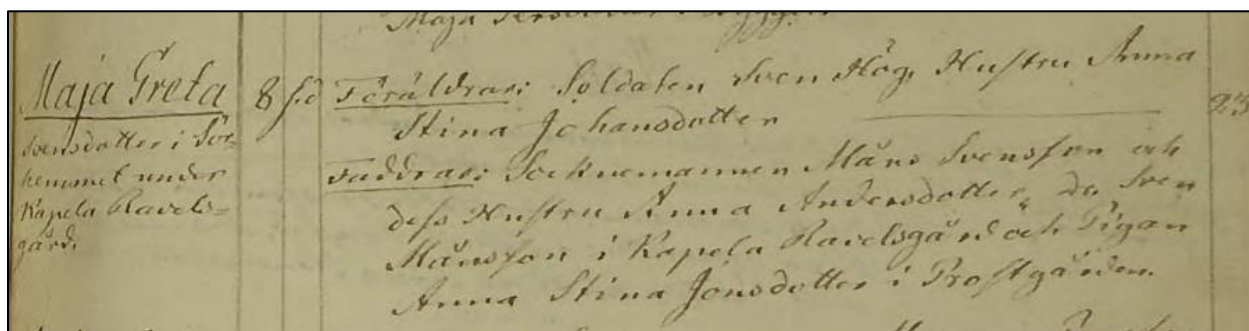 Maja Greta
Svensdotter i Sör-
hemmet under
Kapela Ravels-
gård.
8 f.d
Föräldrar: Soldaten Sven Hög, Hustru Anna
Stina Johansdotter
23
Faddrar: Socknemannen Måns Svensson och
dess Hustru Anna Andersdotter, Sven
Månsson i Kapela Ravelsgård och Pigan
Anna Stina Jonsdotter i Prostgården.